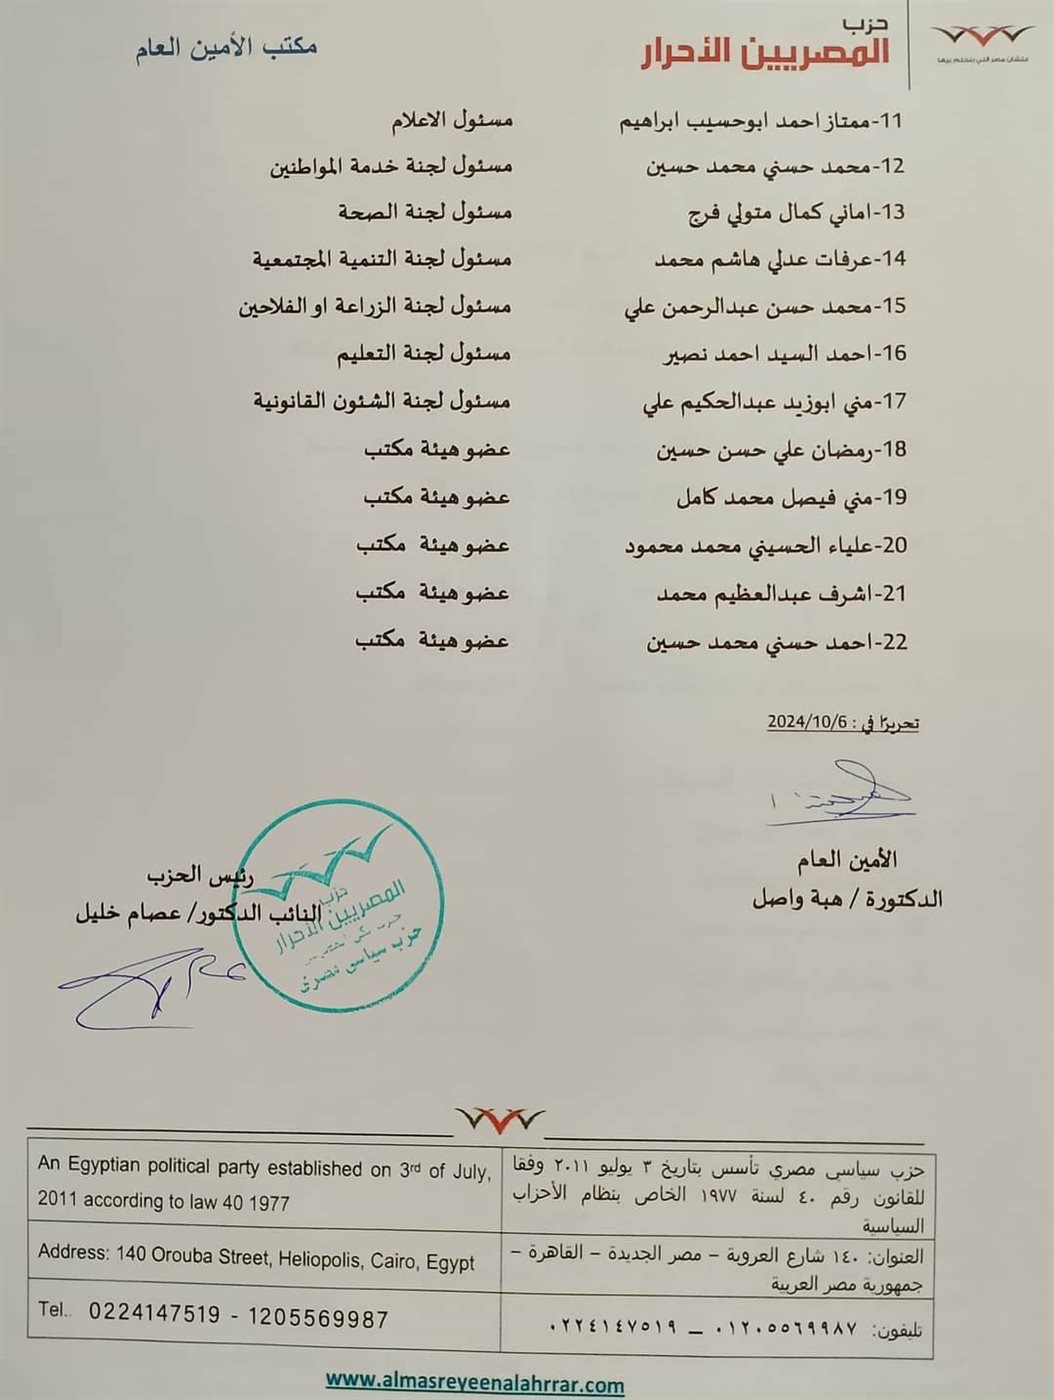 حزب
المصريين الأحرار
علشان مصر اللي بنحلم بيها
مكتب الأمين العام
11-ممتاز احمد ابوحسيب ابراهيم مسئول الاعلام
12-محمد حسني محمد حسين مسئول لجنة خدمة المواطنين
13-اماني كمال متولي فرج مسئول لجنة الصحة
14-عرفات عدلي هاشم محمد مسئول لجنة التنمية المجتمعية
15-محمد حسن عبدالرحمن علي مسئول لجنة الزراعة او الفلاحين
16-احمد السيد احمد نصير مسئول لجنة التعليم
17-مني ابوزيد عبدالحكيم علي مسئول لجنة الشئون القانونية
18-رمضان علي حسن حسين عضو هيئة مكتب
19-مني فيصل محمد كامل عضو هيئة مكتب
20-علياء الحسيني محمد محمود عضو هيئة مكتب
21-اشرف عبدالعظيم محمد عضو هيئة مكتب
22-احمد حسني محمد حسين عضو هيئة مكتب
تحريرًا في : 2024/10/6
الأمين العام
الدكتورة / هبة واصل
رئيس الحزب
النائب الدكتور/ عصام خليل
حزب
المصريين الأحرار
حزب سياسى مصرى
حزب سياسي مصري تأسس بتاريخ ٣ يوليو ٢٠١١ وفقا
للقانون رقم ٤٠ لسنة ١٩٧٧ الخاص بنظام الأحزاب
السياسية
An Egyptian political party established on 3rd of July,
2011 according to law 40 1977
العنوان: ١٤٠ شارع العروبة – مصر الجديدة – القاهرة –
جمهورية مصر العربية
Address: 140 Orouba Street, Heliopolis, Cairo, Egypt
تليفون: ٠١٢٠٥٥٦٩٩٨٧ – ٠٢٢٤١٤٧٥١٩
Tel.. 0224147519 - 1205569987
www.almasreyeenalahrrar.com